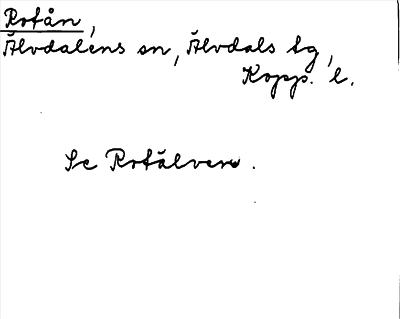 Rotån,
Älvdalens sn, Älvdals tg,
Kopp. l.
Se Rotälven.